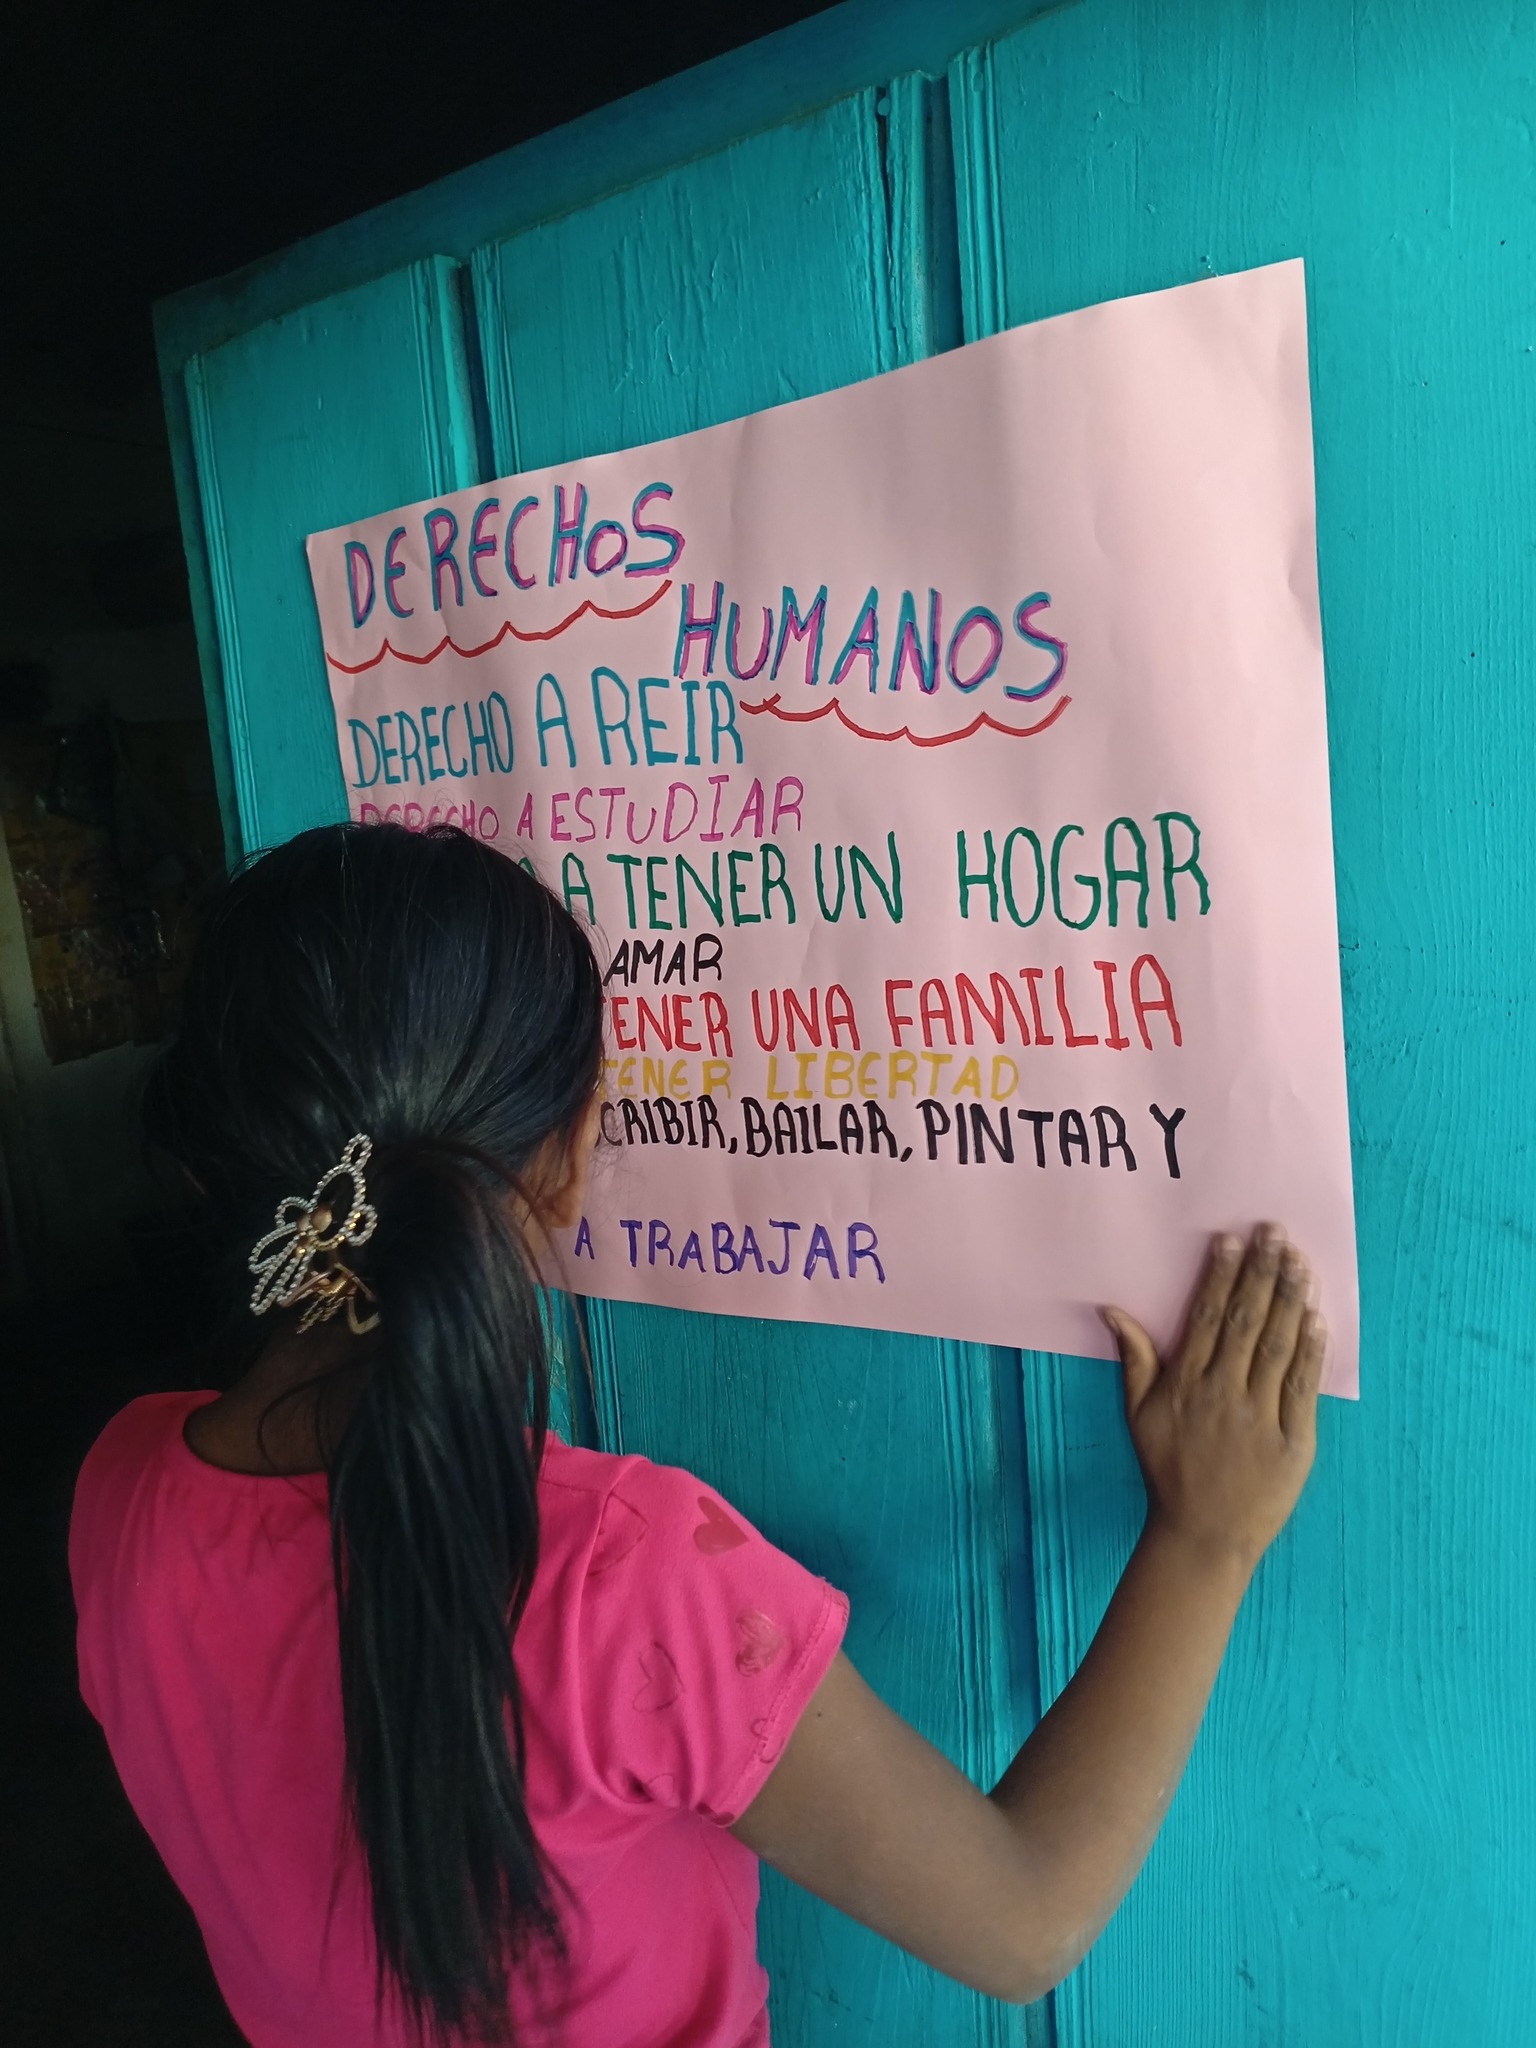 DERECHOS
HUMANOS
DERECHO A REIR
DERECHO A ESTUDIAR
A TENER UN HOGAR
AMAR
TENER UNA FAMILIA
TENER LIBERTAD
CRIBIR, BAILAR, PINTAR Y
A TRABAJAR